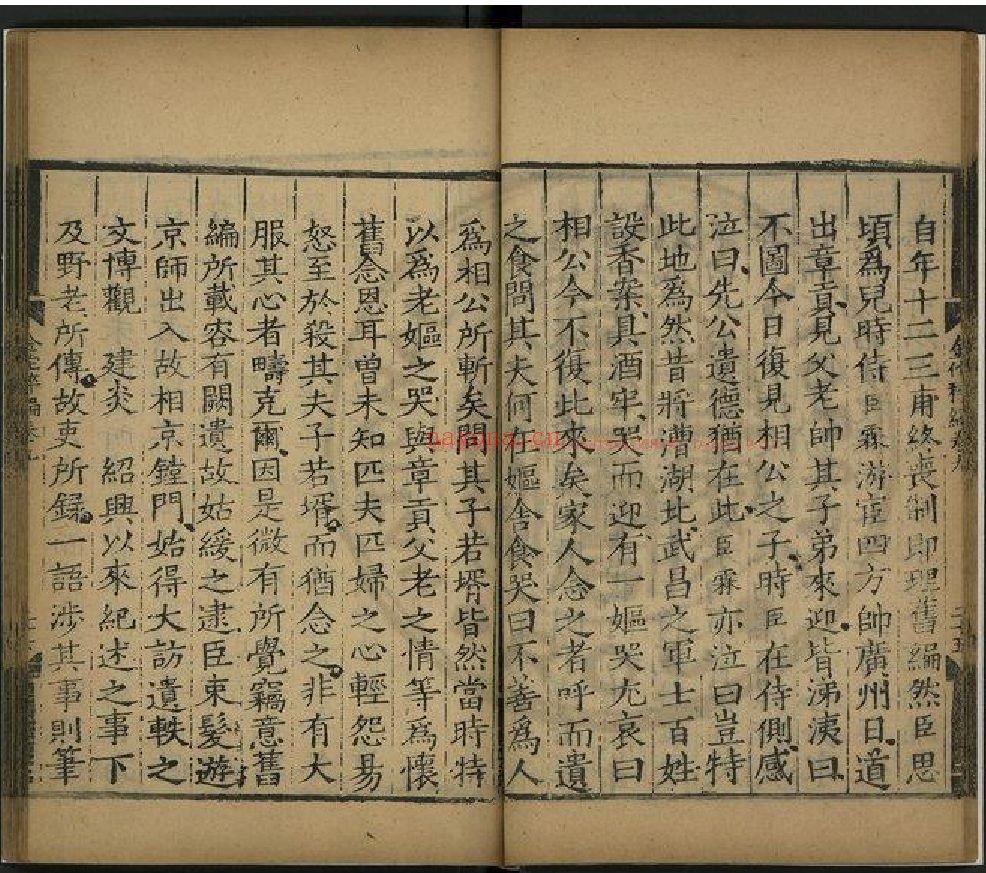 自年十二三甫終喪制即理舊編然臣思
頃爲兒時侍臣霖游宦四方帥廣州日道
出章貢見父老帥其子弟來迎皆涕洟曰
不圖今日復見相公之子時臣在侍側感
泣曰先公遺德猶在此臣霖亦泣曰豈特
此地爲然昔將漕湖北武昌之軍士百姓
設香案具酒牢哭而迎有一嫗哭尤哀曰
相公今不復此來矣家人念之者呼而遺
之食問其夫何在嫗舍食哭曰不善爲人
爲相公所斬矣問其子若壻皆然當時特
以爲老嫗之哭與章貢父老之情等爲懷
舊念恩耳曾未知匹夫匹婦之心輕怨易
怒至於殺其夫子若壻而猶念之非有大
服其心者疇克爾因是微有所覺竊意舊
編所載容有闕遺故姑緩之逮臣束髮游
京師出入故相京鏜門始得大訪遺軼之
文博觀 建炎 紹興以來紀述之事下
及野老所傳故吏所錄一語涉其事則筆
二十五